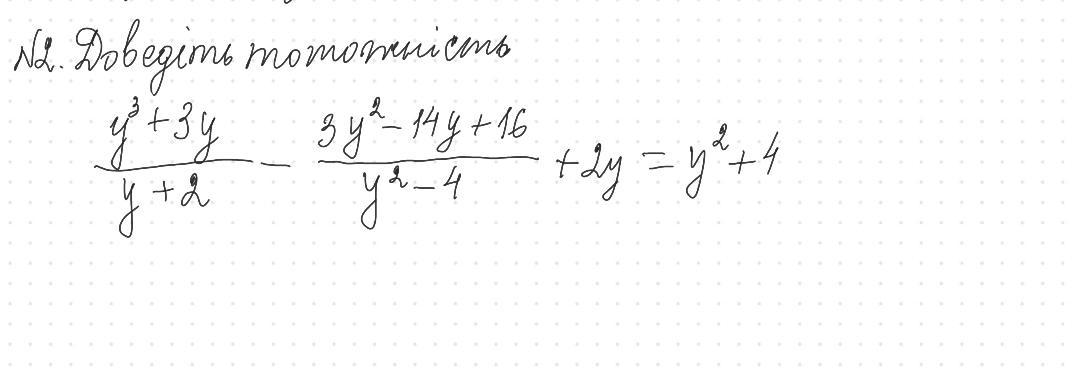 №2. Доведіть тотожність
(y³+3y)/(y+2) − (3y²−14y+16)/(y²−4) +2y = y²+4